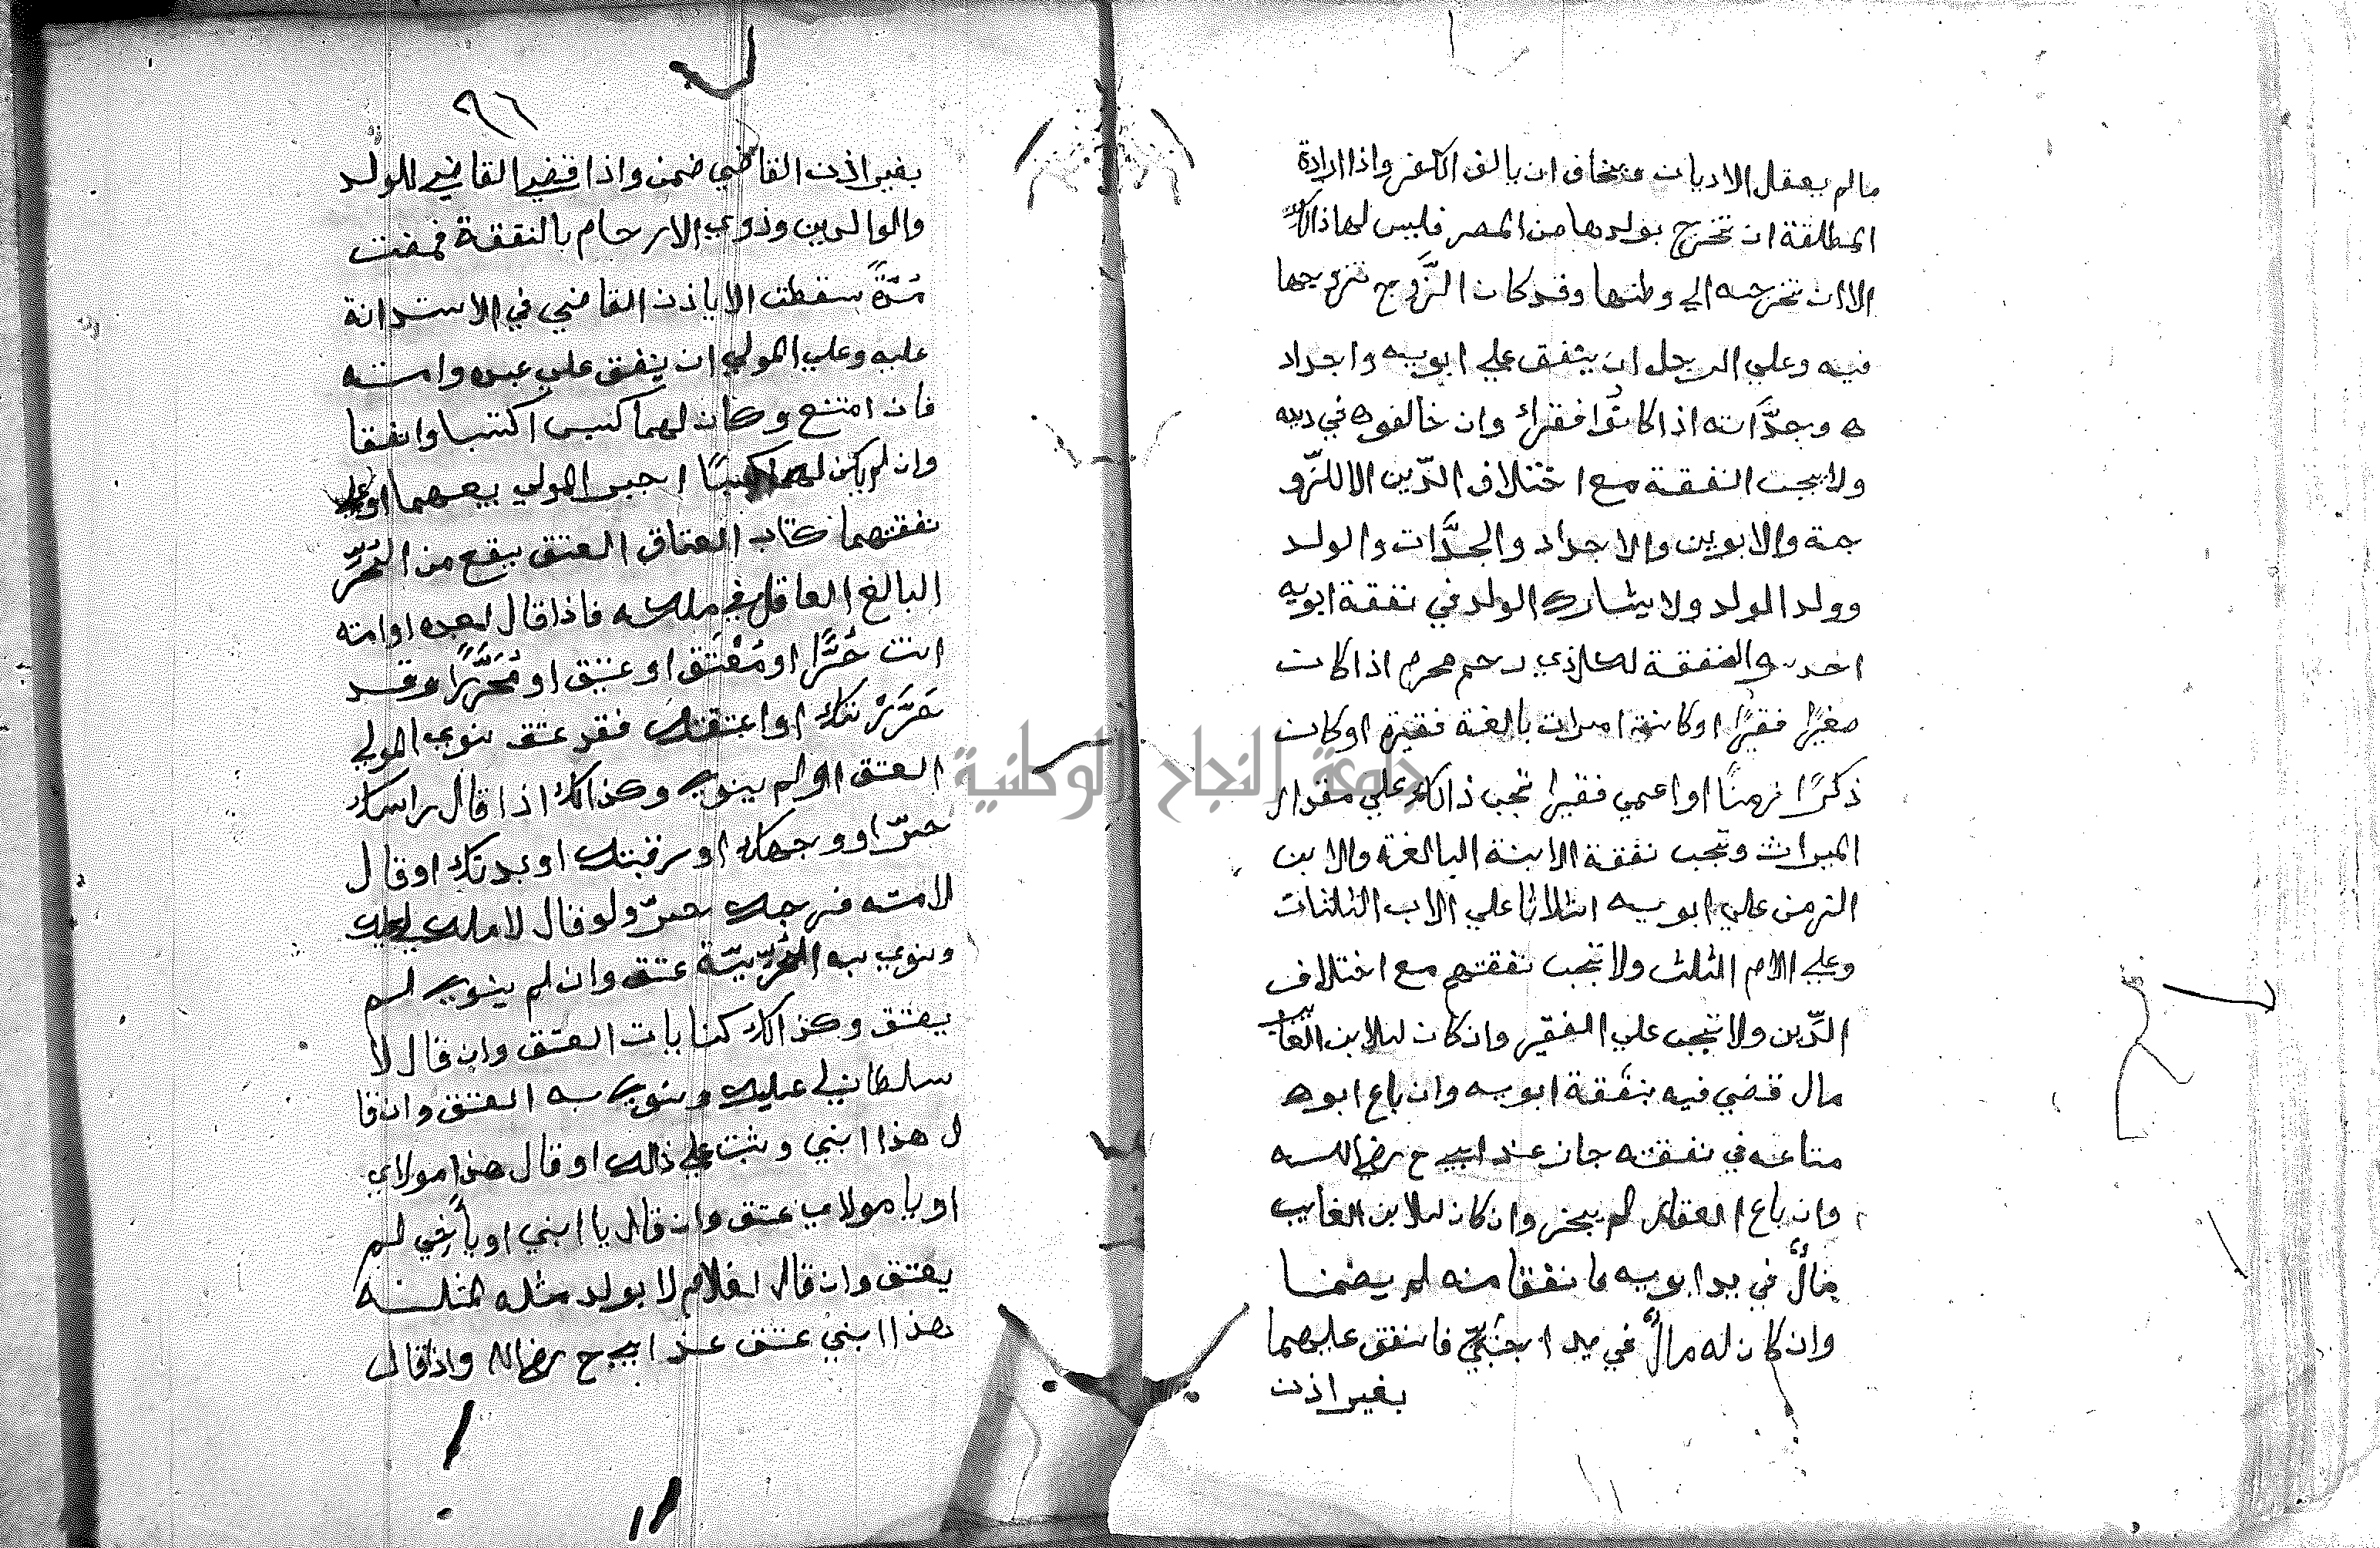 مالم يعقل الاديان ويخاف ان يالف الكفر واذا ارادة
المطلقة ان تخرج بولدها من المصر فليس لها ذالك
الا ان تخرجه الي وطنها وقد كان الزَّوج تزويجها
فيه وعلي الرجل ان ينفق علي ابويه واجداد
ه وجدَّاته اذا كانوُا فقراءً وان خالفوه في دينه
ولا يجب النفقة مع اختلاف الدّين الا للزّو
جة والابوين والاجداد والجدَّات والولد
وولد الولد ولا يشارك الولد في نفقة ابويه
احد والنفقة لكل ذي رحم محرم اذا كان
صغيرًا فقيرًا او كانة امرات بالغة فقيرة او كان
ذكرًا زمنًا او اعمي فقيرا تجب ذالك علي مقدار
الميراث وتجب نفقة الابنة البالغة والابن
الزمن علي ابويه اثلاثا علي الاب الثلثان
وعلي الام الثلث ولا تجب نفقتهم مع اختلاف
الدّين ولا تجب علي الفقير وان كان للابن الغايب
مال قضي فيه بنفقة ابويه وان باع ابوه
متاعه في نفقته جاز عند ابي ح رضي الله
وان باع العقار لم يجز وان كان للابن الغايب
مالٌ في يد ابويه فانفقا منه لم يضمنا
وان كان له مالٌ في يد اجنبيّ فانفق عليهما
بغير اذن
٩٦
بغير اذن القاضي ضمن واذا قضي القاضي للولد
والوالدين وذوي الارحام بالنفقة فمضت
مدّةً سقطت الا ياذن القاضي في الاستدانة
عليه وعلي المولي ان ينفق علي عبده وامته
فان امتنع وكان لهما كسب اكتسبا وانفقا
وان لم يكن لهما كسبًا اجبر المولي ببيعهما او علي
نفقتهما كتاب العتاق العتق يقع من الحُرّ
البالغ العاقل في ملكه فاذا قال لعبده او امته
انت حُرًّا او مُعْتَق او عتيق او مُحَرَّرًا وقد
حَرَّرْتك او اعتقتك فقد عتق نوي المولي
العتق او لم ينوي وكذالك اذا قال راسك
حرّ او وجهك او رقبتك او بدنك او قال
لامته فرجك حرّ ولو قال لا ملك لي عليك
ونوي به الحُرّيّة عتق وان لم ينوي لم
يعتق وكذالك كنايات العتق وان قال لا
سلطان لي عليك ونوي به العتق وان قا
ل هذا ابني وثبت علي ذالك او قال هذا مولاي
او يا مولاي عتق وان قال يا ابني او يا أخي لم
يعتق وان قال لغلام لا يولد مثله لمثله
هذا ابني عتق عند ابي ح رضي الله واذا قال
جامعة النجاح الوطنية